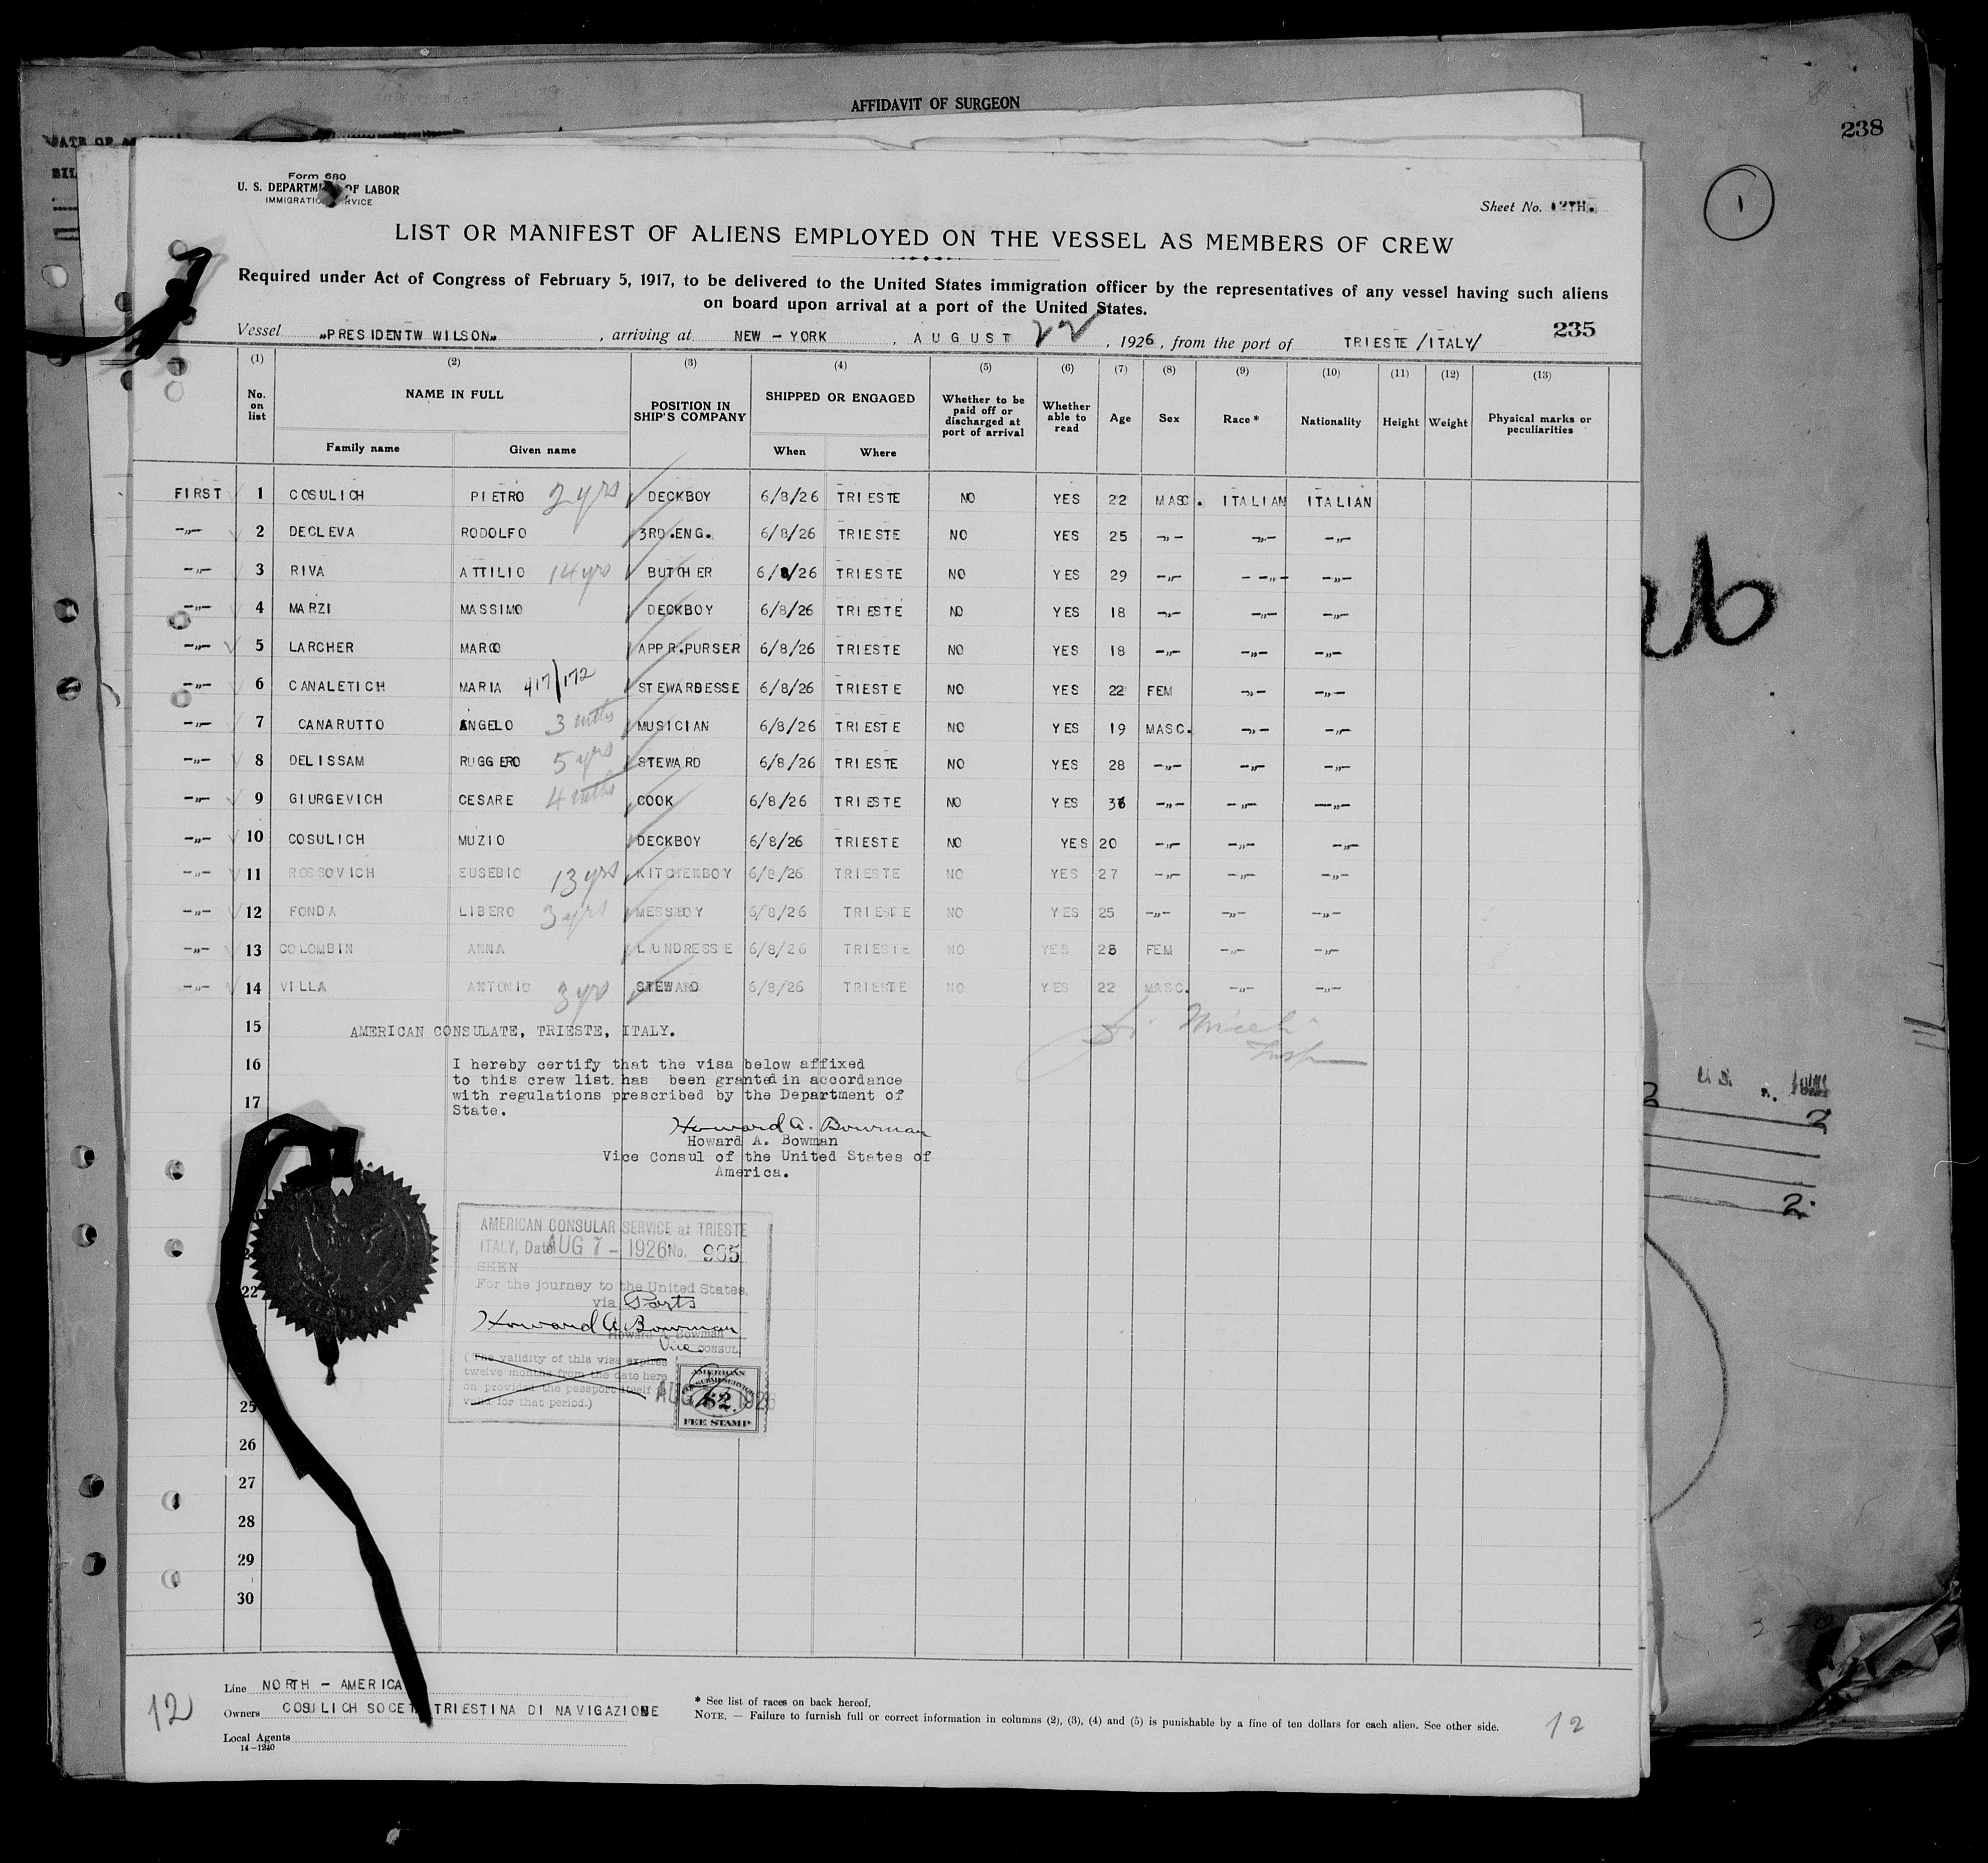 AFFIDAVIT OF SURGEON
238
1
Form 680
U. S. DEPARTM OF LABOR
IMMIGRATIO RVICE
Sheet No. 12TH.
LIST OR MANIFEST OF ALIENS EMPLOYED ON THE VESSEL AS MEMBERS OF CREW
Required under Act of Congress of February 5, 1917, to be delivered to the United States immigration officer by the representatives of any vessel having such aliens
on board upon arrival at a port of the United States.
235
Vessel „PRESIDENTW WILSON„ , arriving at NEW – YORK , AUGUST 22 , 1926 , from the port of TRIESTE /ITALY/
(1) (2) (3) (4) (5) (6) (7) (8) (9) (10) (11) (12) (13)
No. on list NAME IN FULL Family name Given name POSITION IN SHIP'S COMPANY SHIPPED OR ENGAGED When Where Whether to be paid off or discharged at port of arrival Whether able to read Age Sex Race * Nationality Height Weight Physical marks or peculiarities
FIRST 1 COSULICH PIETRO 2 yrs DECKBOY 6/8/26 TRIESTE NO YES 22 MASC. ITALIAN ITALIAN
–„– 2 DECLEVA RODOLFO 3RD.ENG. 6/8/26 TRIESTE NO YES 25 –„– –„– –„–
–„– 3 RIVA ATTILIO 14 yrs BUTCHER 6/8/26 TRIESTE NO YES 29 –„– – –„– –„–
–„– 4 MARZI MASSIMO DECKBOY 6/8/26 TRIESTE NO YES 18 –„– –„– –„–
–„– 5 LARCHER MARCO APPR.PURSER 6/8/26 TRIESTE NO YES 18 –„– –„– –„–
–„– 6 CANALETICH MARIA 417/172 STEWARDESSE 6/8/26 TRIESTE NO YES 22 FEM –„– –„–
–„– 7 CANARUTTO ANGELO 3 mths MUSICIAN 6/8/26 TRIESTE NO YES 19 MASC. –„– –„–
–„– 8 DELISSAM RUGGERO 5 yrs STEWARD 6/8/26 TRIESTE NO YES 28 –„– –„– –„–
–„– 9 GIURGEVICH CESARE 4 mths COOK 6/8/26 TRIESTE NO YES –„– –„– –„–
–„– 10 COSULICH MUZIO DECKBOY 6/8/26 TRIESTE NO YES 20 –„– –„– –„–
–„– 11 ROSSOVICH EUSEBIO 13 yrs KITCHENBOY 6/8/26 TRIESTE NO YES 27 –„– –„– –„–
–„– 12 FONDA LIBERO 3 yrs MESSBOY 6/8/26 TRIESTE NO YES 25 –„– –„– –„–
–„– 13 COLOMBIN ANNA LAUNDRESSE 6/8/26 TRIESTE NO YES FEM –„– –„–
–„– 14 VILLA ANTONIO 3 yrs STEWARD 6/8/26 TRIESTE NO YES 22 MASC. –„– –„–
15 AMERICAN CONSULATE, TRIESTE, ITALY.
16 I hereby certify that the visa below affixed
to this crew list. has been granted in accordance
17 with regulations prescribed by the Department of
State.
Howard A. Bowman
Howard A. Bowman
Vice Consul of the United States of
America.
AMERICAN CONSULAR SERVICE at TRIESTE
ITALY, Date AUG 7 – 1926 No. 905
SEEN
For the journey to the United States,
22
via Ports
Howard A. Bowman
Howard A. Bowman
Vice CONSUL
(The validity of this visa expires
twelve months from the date here
on provided the passport itself is
valid for that period.)
AUG 7 1926
AMERICAN CONSULAR SERVICE
$2.
FEE STAMP
25
26
27
28
29
30
12
Line NORTH – AMERICA
Owners COSULICH SOCET TRIESTINA DI NAVIGAZIONE
Local Agents
14—1240
* See list of races on back hereof.
NOTE. — Failure to furnish full or correct information in columns (2), (3), (4) and (5) is punishable by a fine of ten dollars for each alien. See other side.
12
2
2